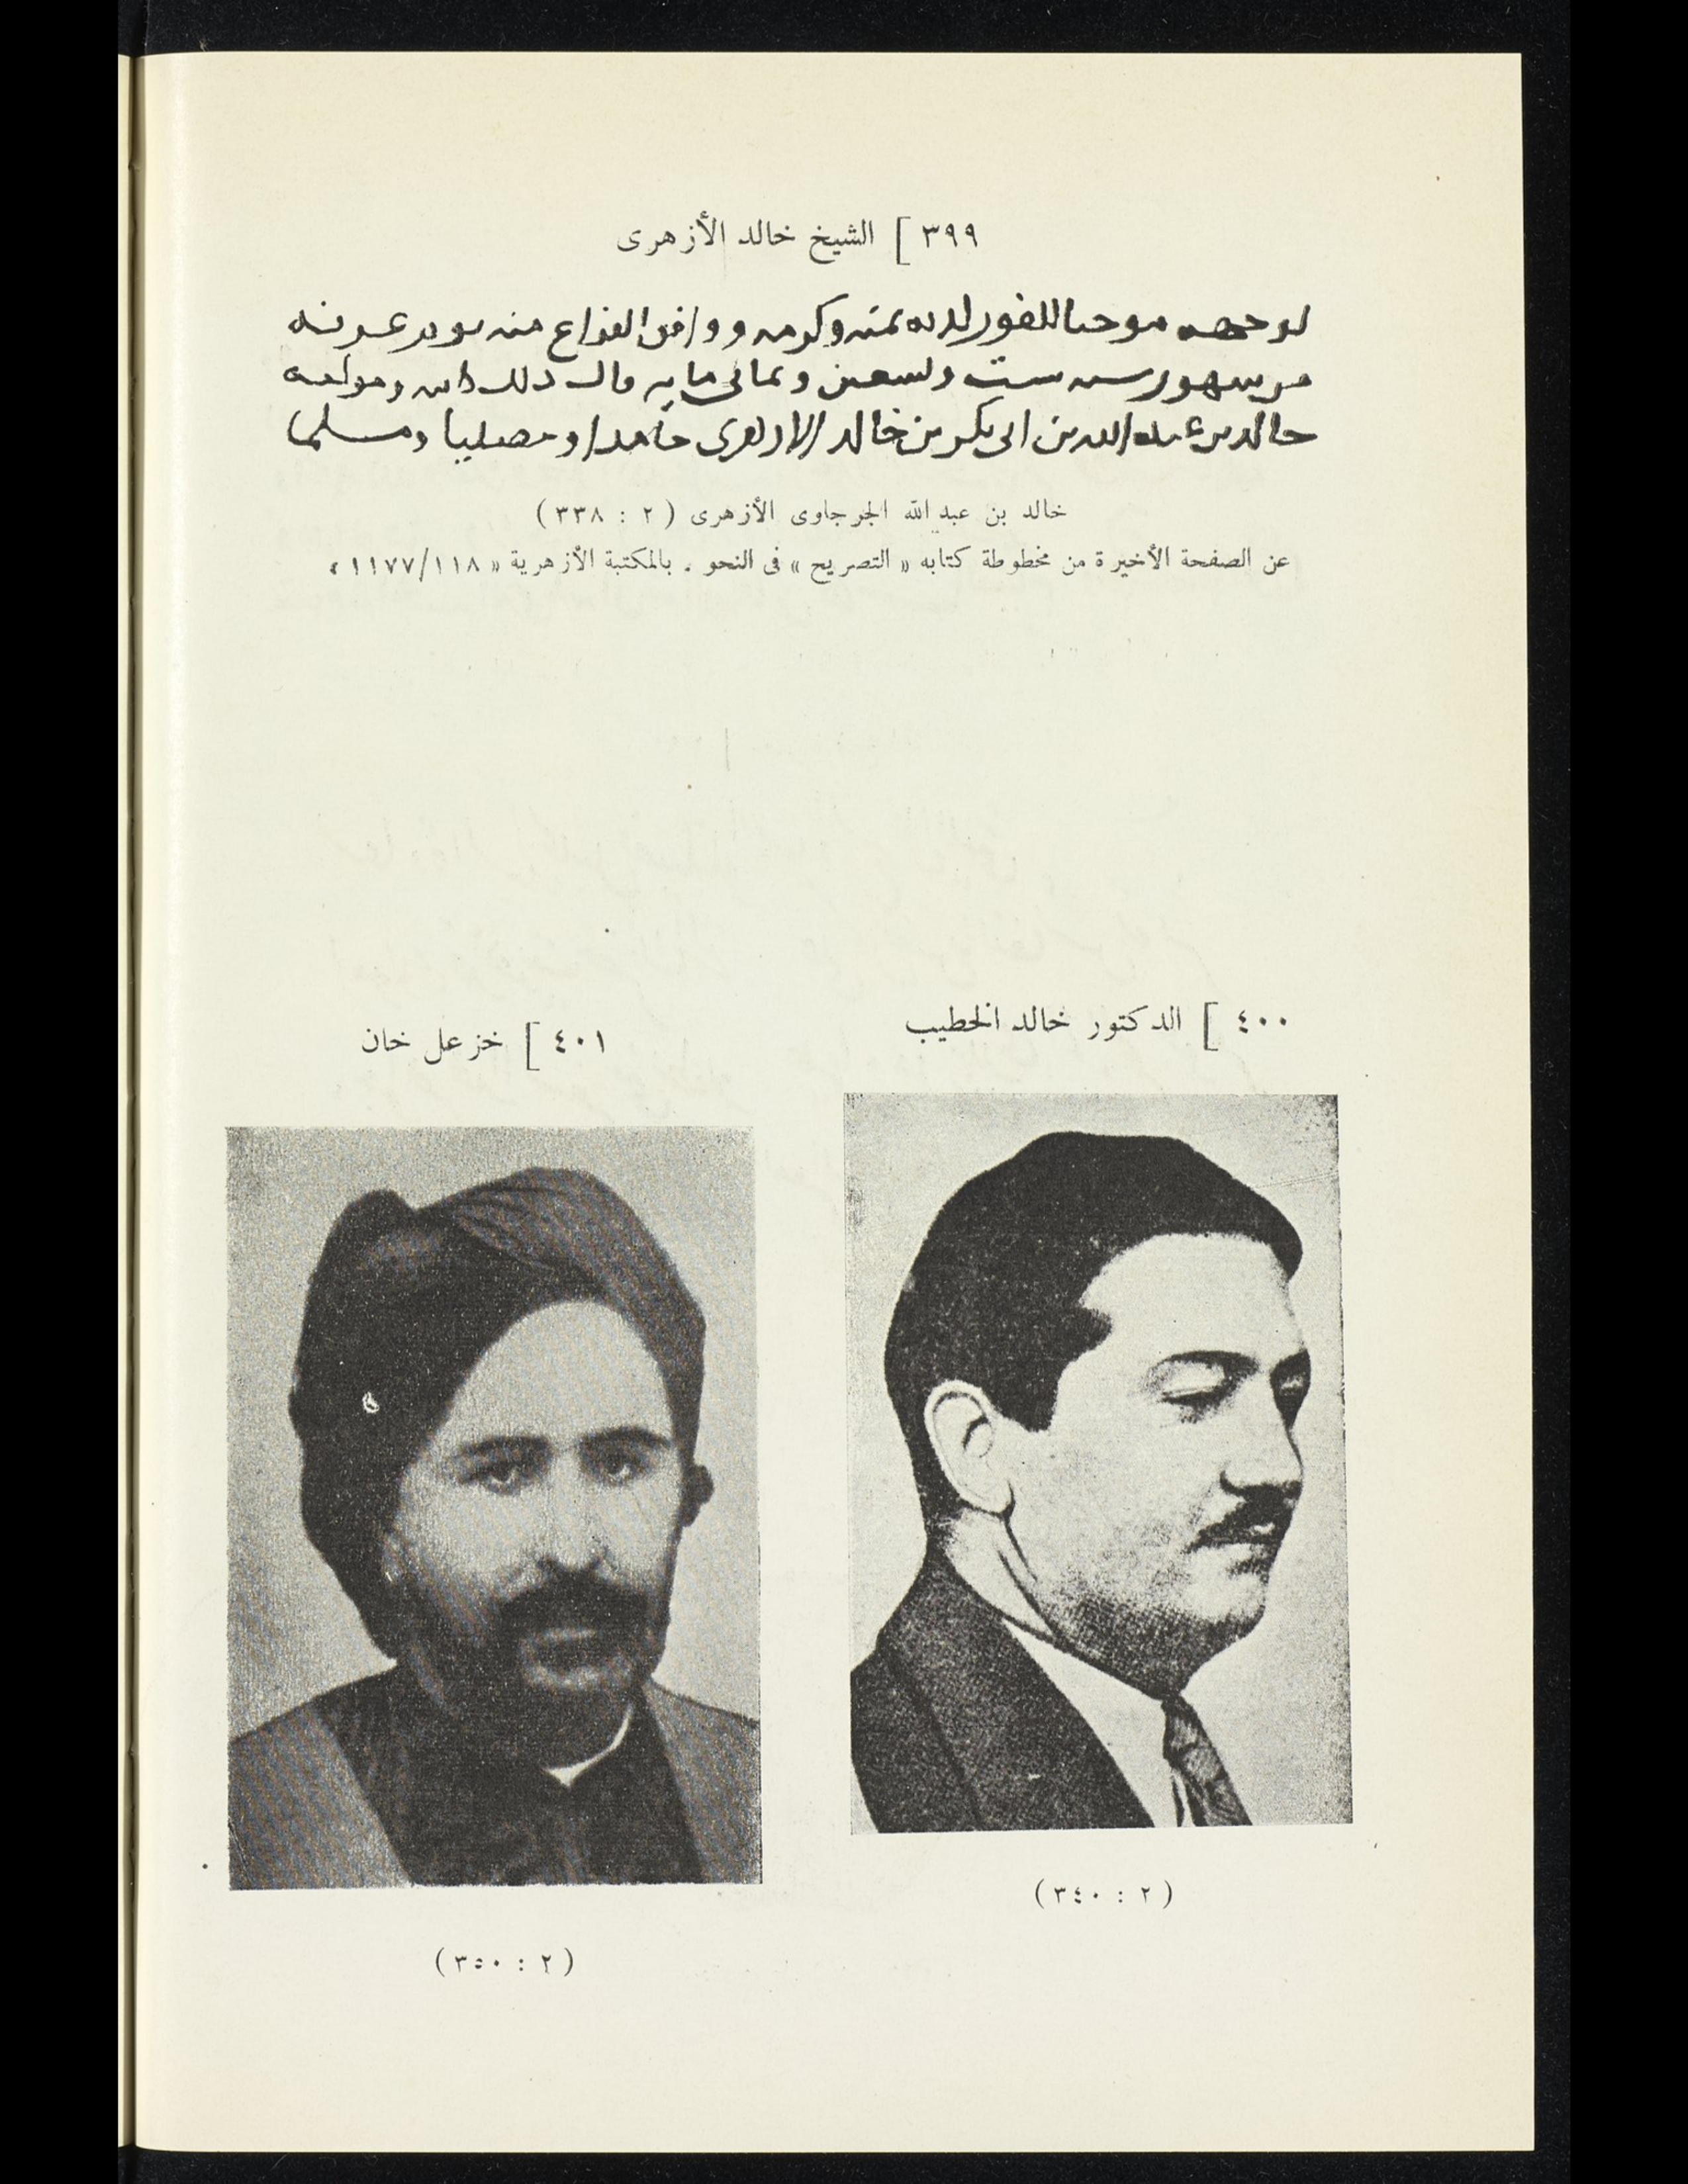 ٣٩٩ ] الشيخ خالد الأزهرى
لوجهه موجبا للفوز لديه بمنه وكرمه ووافق الفراغ منه يوم عرفة
من شهور سنة ست وتسعين وثمانى مايه قال ذلك كاتبه ومولفه
خالد بن عبد الله بن ابى بكر بن خالد الازهرى حامدا ومصليا ومسلما
خالد بن عبد الله الجرجاوى الأزهرى ( ٢ : ٣٣٨ )
عن الصفحة الأخيرة من مخطوطة كتابه « التصريح » فى النحو . بالمكتبة الأزهرية « ١١٧٧/١١٨ »
٤٠٠ ] الدكتور خالد الخطيب
٤٠١ ] خزعل خان
( ٢ : ٣٤٠ )
( ٢ : ٣٥٠ )